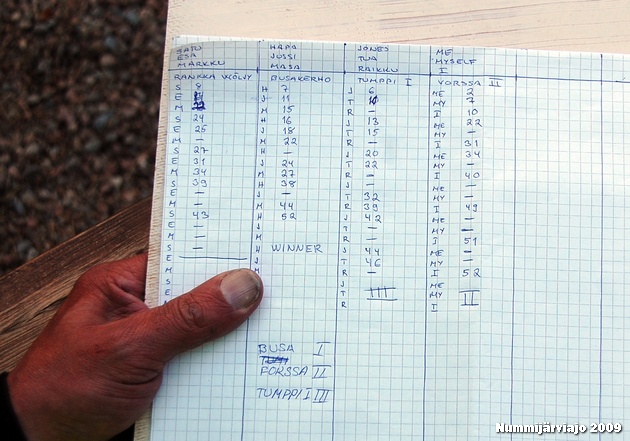 SATU
ESA
MARKKU
RANKKA KÖLVY
S 8
E
M 22
S 24
E 25
M –
S 27
E 31
M 34
S 39
E –
M –
S 43
E –
M –
S –
E
M
S
E
HAPA
JUSSI
MASA
BUSAKERHO
H 7
J 11
M 15
H 16
J 18
M 22
H –
J 24
M 27
H 38
J –
M 44
H 52
J
M
H WINNER
J
M
JONES
TUA
RAIKKU
TUMPPI I
J 6
T 10
R –
J 13
T 15
R –
J 20
T 22
R –
J –
T 32
R 39
J 42
T –
R –
J 44
T 46
R –
J
T III
R
ME
MYSELF
I
VORSSA II
ME 2
MY 7
I 10
ME 22
MY –
I 31
ME 34
MY –
I 40
ME –
MY –
I 49
ME –
MY –
I 51
ME –
MY –
I 52
ME
MY II
I
BUSA I
FORSSA II
TUMPPI I III
Nummijärviajo 2009